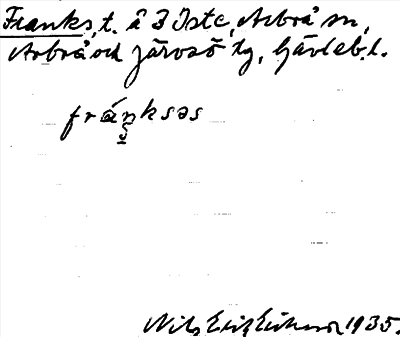 Franks, t. å 3 Iste, Arbrå sn,
Arbrå och Järvsö tg, Gävleb. l.
fránksəs
Nils Eric Eriksson 1935.